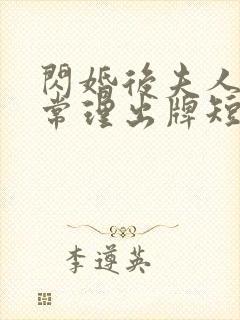 閃婚後夫人
常理出牌短
李遵英